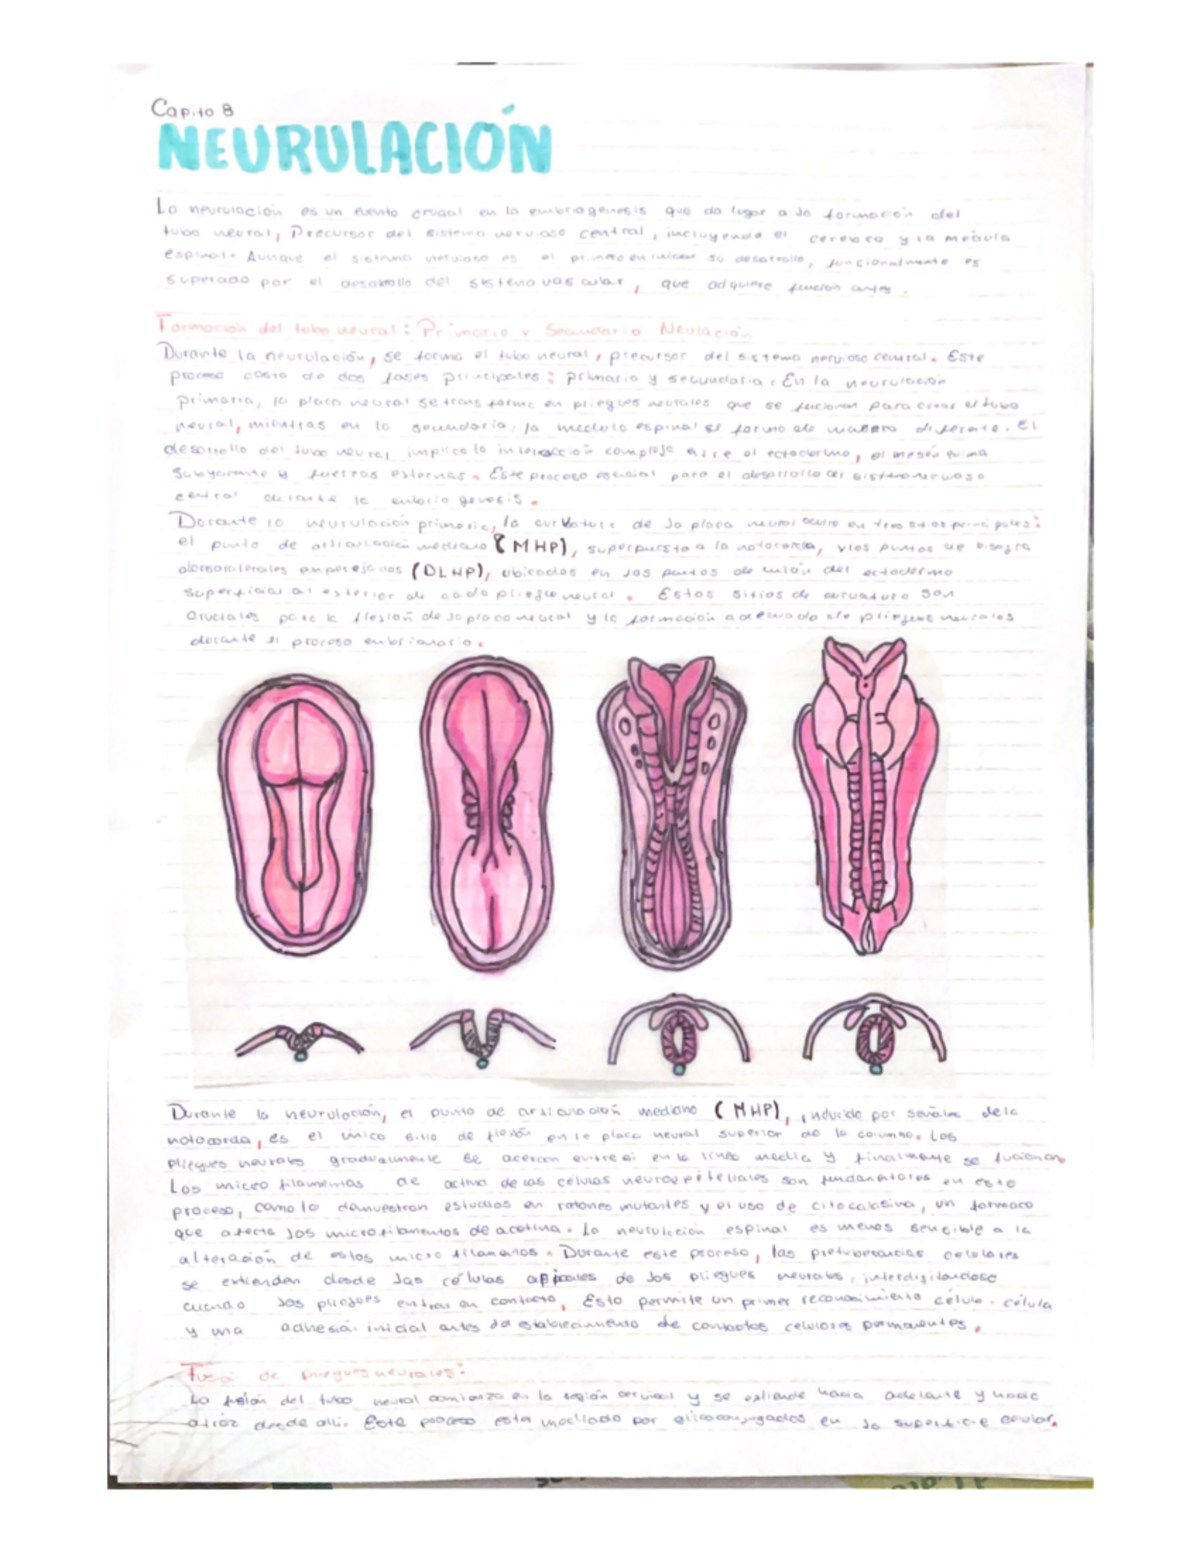 Capito 8
NEURULACIÓN
La neurulación es un evento crucial en la embriogenesis que da lugar a la formación del
tubo neural, Precursor del sistema nervioso central, incluyendo el cerebro y la médula
espinal. Aunque el sistema nervioso es el primero en iniciar su desarrollo, funcionalmente es
superado por el desarrollo del sistema vascular, que adquiere función antes.
Formación del tubo neural: Primaria y Secundaria Neulación
Durante la neurulación, se forma el tubo neural, precursor del sistema nervioso central. Este
proceso costa de dos fases principales: primaria y secundaria. En la neurulación
primaria, la placa neural se transforma en pliegues neurales que se fucionan para crear el tubo
neural, mientras en la secundaria, la medula espinal se forma de manera diferente. El
desarrollo del tubo neural implica la interacción compleja entre el ectodermo, el mesénquima
subyacente y fuerzas externas. Este proceso esencial para el desarrollo del sistema nervioso
central durante la embriogenesis.
Durante la neurulación primaria, la curvatura de la placa neural ocurre en tres sitios principales:
el punto de articulación mediano (MHP), superpuesto a la notocorda, y los puntos de bisagra
dorsolaterales emparejados (DLHP), ubicados en los puntos de unión del ectodermo
superficial al exterior de cada pliegue neural. Estos sitios de curvatura son
cruciales para la flexión de la placa neural y la formación adecuada de pliegues neurales
durante el proceso embrionario.
Durante la neurulación, el punto de articulación mediano (MHP), inducido por señales de la
notocorda, es el único sitio de flexión en la placa neural superior de la columna. Los
pliegues neurales gradualmente se acercan entre si en la línea media y finalmente se fucionan
Los micro filamentos de actina de las células neuroepiteliales son fundamentales en este
proceso, como lo demuestran estudios en ratones mutantes y el uso de citocalasina, un farmaco
que afecta los microfilamentos de acetina. La neurulación espinal es menos sencible a la
alteración de estos micro filamentos. Durante este proceso, las protuberancias celulares
se extienden desde las células apicales de los pliegues neurales, interdigitandose
cuando los pliegues entran en contacto, Esto permite un primer reconocimiento célula-célula
y una adhesia inicial antes establecimiento de contactos celulares permanentes.
de pliegues neurales:
La del tubo neural comienza en la región cervical y se extiende hacia adelante y hacia
atráz desde alli. Este proceso esta mediado por glicoconjugados en la superficie celular.